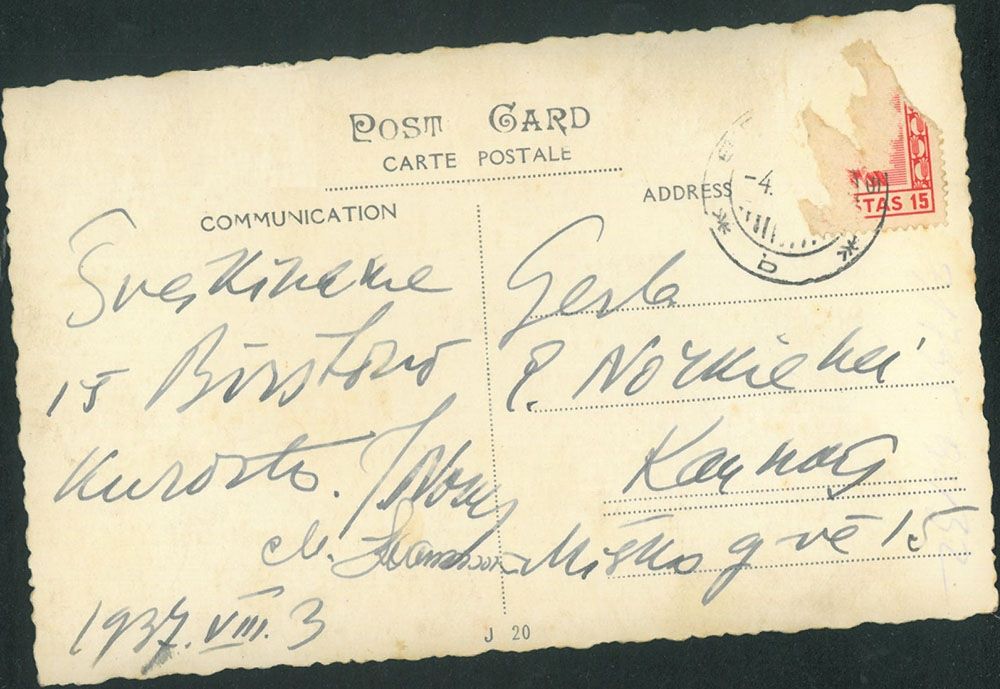 POST CARD
CARTE POSTALE
COMMUNICATION
ADDRESS
-4.
TAS 15
b
Sveikiname
iš Birštono
Kurorto.
M.
1937.VIII.3
Gerb
P. Norkienei
Kaunas
Miško g vė 15
J 20